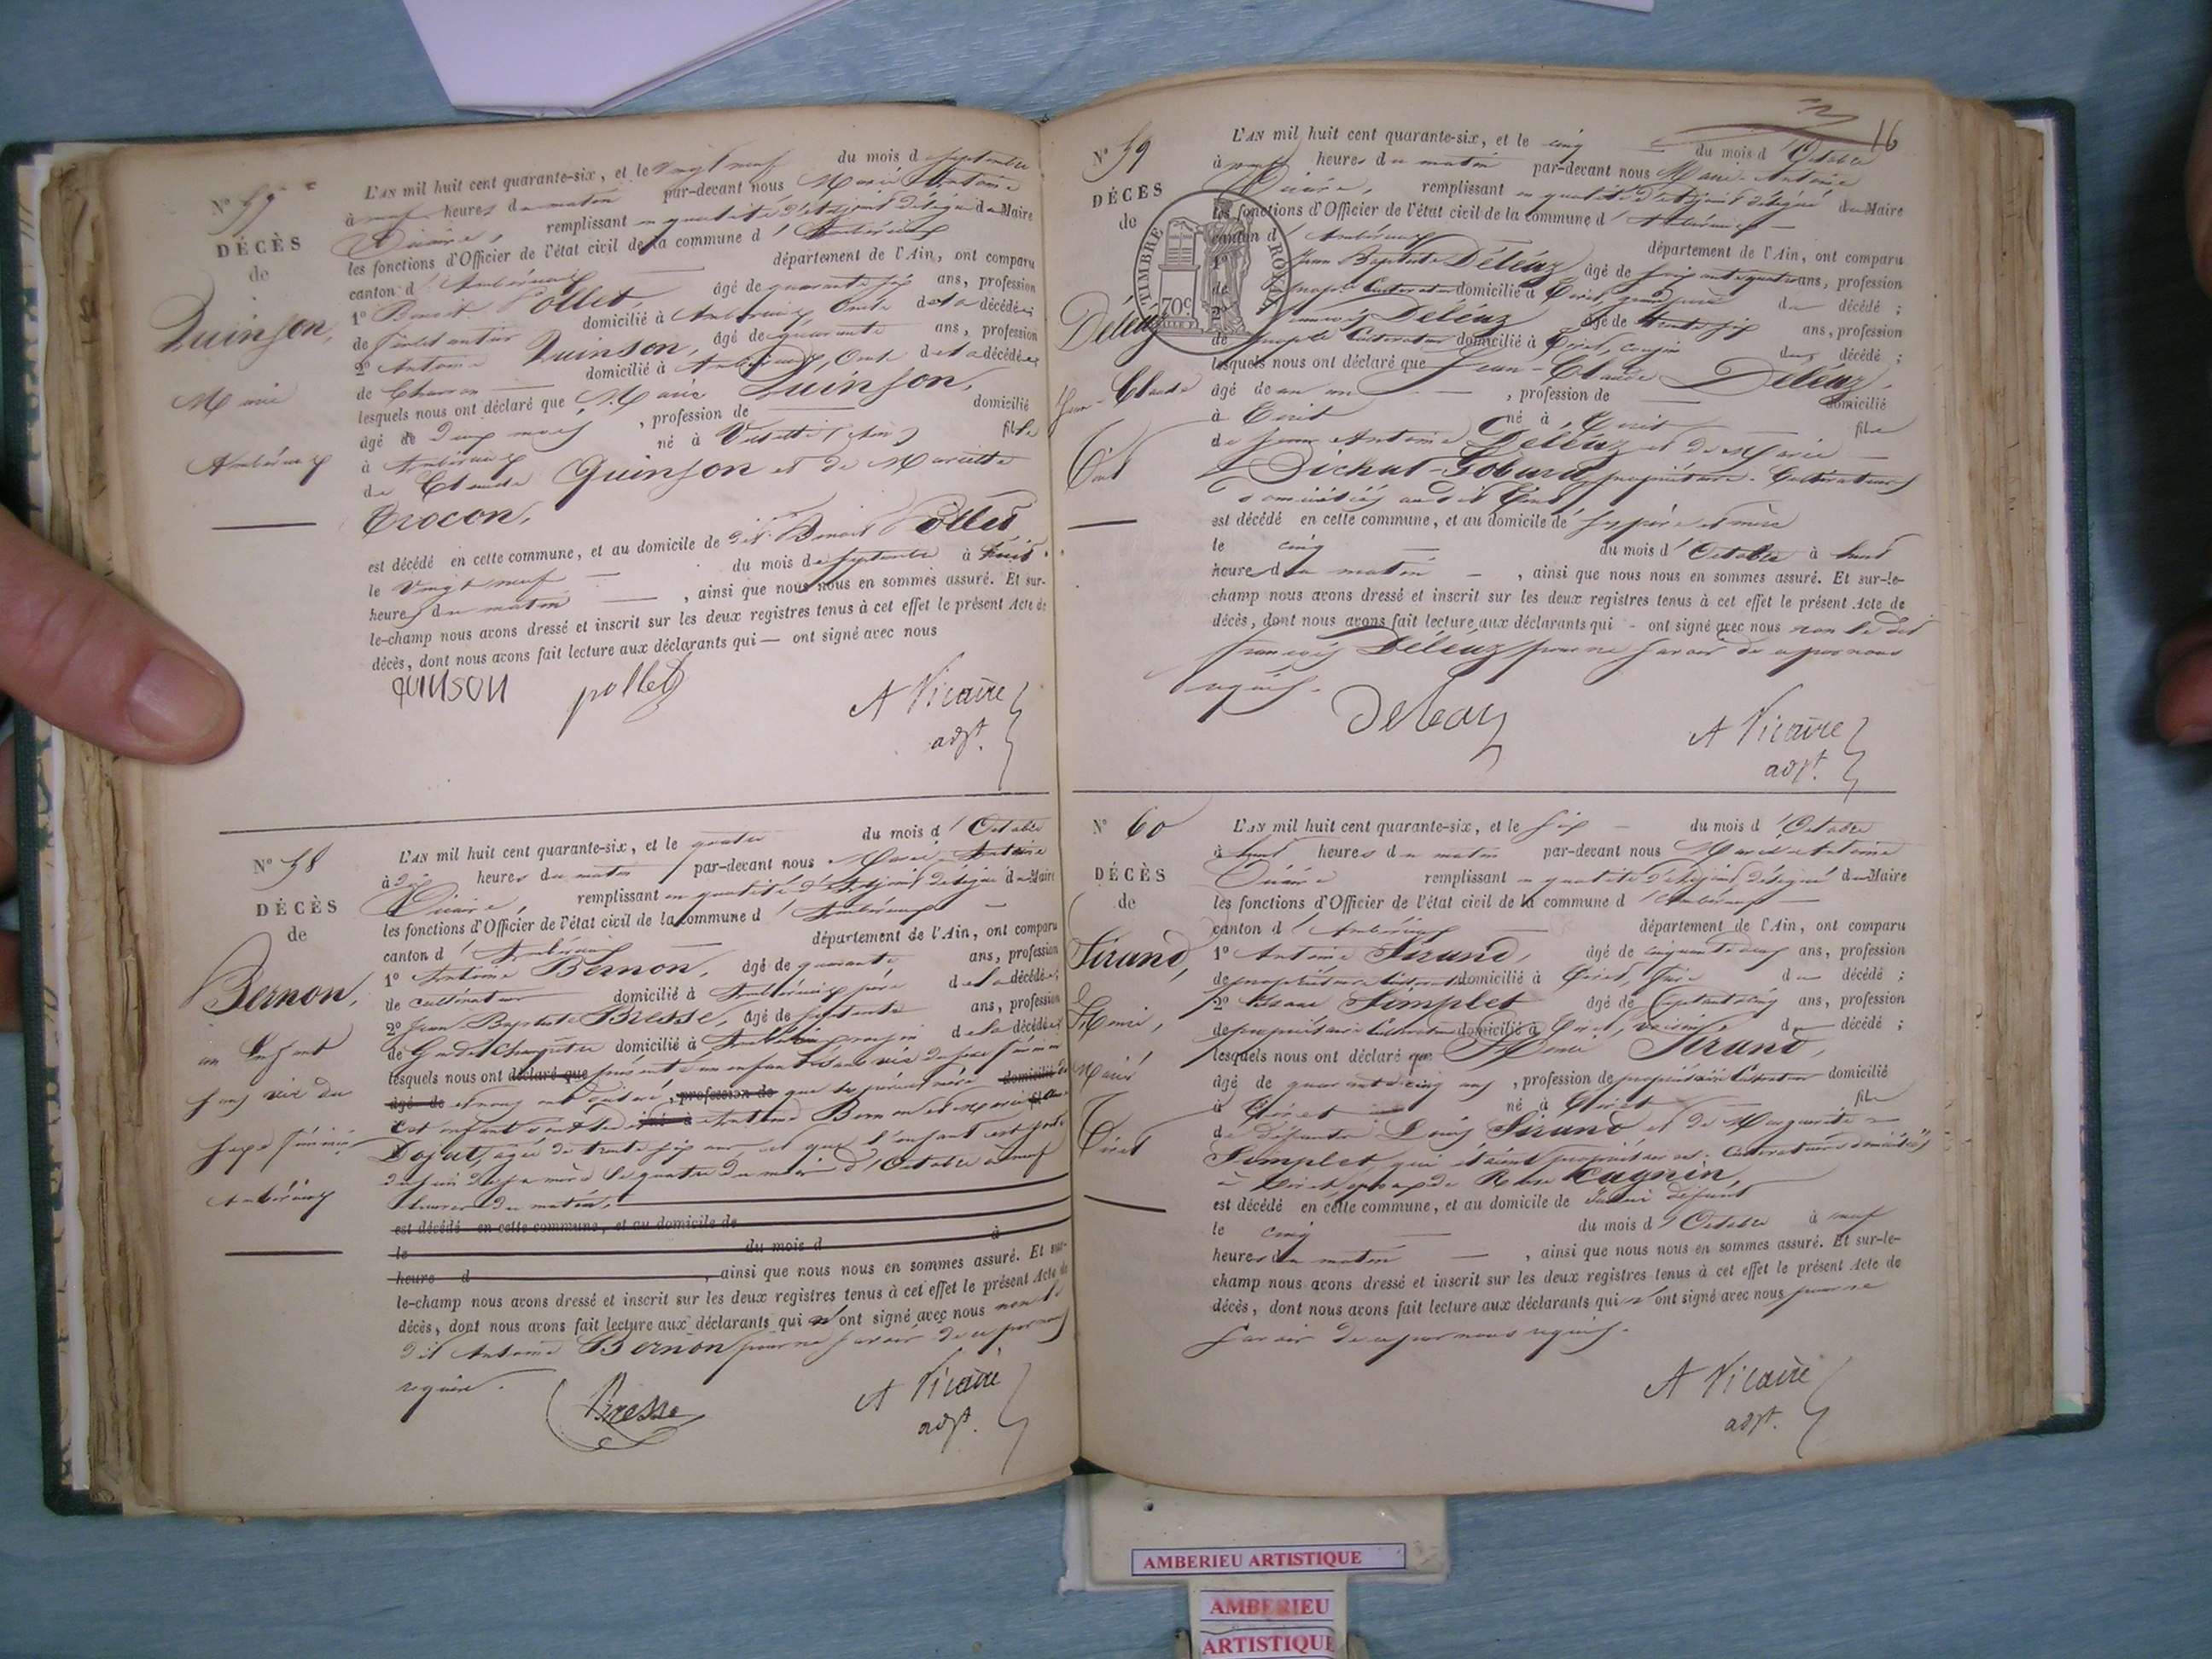 N° 57
DÉCÈS
de
Quinson,
Marie
Ambérieux
L'AN mil huit cent quarante-six, et le vingt neuf du mois de septembre
à neuf heures du matin par-devant nous Marie Antoine
Vicaire, remplissant en qualité d'adjoint délégué du Maire
les fonctions d'Officier de l'état civil de la commune d'Ambérieux
canton d'Ambérieux département de l'Ain, ont comparu
1° Benoit Pollet, âgé de quarante six ans, profession
de domicilié à Ambérieux, Oncle de la décédée;
2° Antoine Quinson, âgé de quarante ans, profession
de Charron domicilié à Ambérieux, Oncle de la décédée;
lesquels nous ont déclaré que Marie Quinson,
âgé de deux mois, profession de domicilié
à Ambérieux né à fille
de Claude Quinson et de Mariette
Trocon,
est décédé en cette commune, et au domicile de dit Benoit Pollet
le vingt neuf du mois de septembre à huit
heures du matin, ainsi que nous nous en sommes assuré. Et sur-
le-champ nous avons dressé et inscrit sur les deux registres tenus à cet effet le présent Acte de
décès, dont nous avons fait lecture aux déclarants qui — ont signé avec nous
quinson pollet A Vicaire
adjt.
N° 58
DÉCÈS
de
Bernon,
un Enfant
sans vie du
sexe féminin
Ambérieux
L'AN mil huit cent quarante-six, et le quatre du mois d'Octobre
à dix heures du matin par-devant nous Marie Antoine
Vicaire, remplissant en qualité d'Adjoint délégué du Maire
les fonctions d'Officier de l'état civil de la commune d'Ambérieux
canton d'Ambérieux département de l'Ain, ont comparu
1° Antoine Bernon, âgé de quarante ans, profession
de cultivateur domicilié à Ambérieux, père de la décédée;
2° Jean Baptiste Bresse, âgé de soixante ans, profession
de Garde Champêtre domicilié à Ambérieux de la décédée;
lesquels nous ont déclaré que présenté un enfant sans vie du sexe féminin
âgé de et nous ont déclaré, profession de que les père et mère domicilié de
cet enfant sont le dit né à Antoine Bernon et Marie
Dojat, agée de trente six ans, et que l'enfant est sorti
du sein de sa mère le quatre du mois d'Octobre à neuf
heures du matin,
est décédé en cette commune, et au domicile de
le du mois d à
heure d, ainsi que nous nous en sommes assuré. Et sur-
le-champ nous avons dressé et inscrit sur les deux registres tenus à cet effet le présent Acte de
décès, dont nous avons fait lecture aux déclarants qui ont signé avec nous non le
dit Antoine Bernon pour ne savoir de ce par nous
requis.
Bresse A Vicaire
adjt.
16
N° 59
DÉCÈS
de
Déléaz
Jean-Claude
Tiret
TIMBRE ROYAL
70c
L'AN mil huit cent quarante-six, et le cinq du mois d'Octobre
à neuf heures du matin par-devant nous Marie-Antoine
Vicaire, remplissant en qualité d'adjoint délégué du Maire
les fonctions d'Officier de l'état civil de la commune d'Ambérieux
canton d'Ambérieux département de l'Ain, ont comparu
1° Jean Baptiste Déléaz, âgé de soixante quatre ans, profession
de propre Cultivateur domicilié à Tiret, grand père du décédé;
2° françois Déléaz âgé de trente six ans, profession
de propre Cultivateur domicilié à Tiret, cousin du décédé;
lesquels nous ont déclaré que Jean-Claude Déléaz,
âgé de un an, profession de domicilié
à Tiret né à Tiret fils
de Jean Antoine Déléaz et de Marie
Dichat-Gobard, propriétaires Cultivateurs
domiciliés au dit Tiret
est décédé en cette commune, et au domicile de ses père et mère
le cinq du mois d'Octobre à huit
heure du matin, ainsi que nous nous en sommes assuré. Et sur-le-
champ nous avons dressé et inscrit sur les deux registres tenus à cet effet le présent Acte de
décès, dont nous avons fait lecture aux déclarants qui - ont signé avec nous non le dit
françois Déléaz pour ne savoir de ce par nous
requis.
deleaz A Vicaire
adjt.
N° 60
DÉCÈS
de
Sirand,
Marie
Tiret
L'AN mil huit cent quarante-six, et le six du mois d'Octobre
à huit heures du matin par-devant nous Marie Antoine
Vicaire remplissant en qualité d'adjoint délégué du Maire
les fonctions d'Officier de l'état civil de la commune d'Ambérieux
canton d'Ambérieux département de l'Ain, ont comparu
1° Antoine Sirand, âgé de cinquante deux ans, profession
de propriétaire Cultivateur domicilié à Tiret, frère du décédé;
2° Simplet âgé de septante cinq ans, profession
de propriétaire Cultivateur domicilié à Tiret, voisin du décédé;
lesquels nous ont déclaré que Sirand,
âgé de quarante cinq ans, profession de propriétaire Cultivateur domicilié
à Tiret né à Tiret fils
de défunts Louis Sirand et de Marguerite
Simplet, qui étaient propriétaires Cultivateurs domiciliés
à Tiret, époux de Rose Cagnin,
est décédé en cette commune, et au domicile de défunt
le cinq du mois d'Octobre à neuf
heures du matin, ainsi que nous nous en sommes assuré. Et sur-le-
champ nous avons dressé et inscrit sur les deux registres tenus à cet effet le présent Acte de
décès, dont nous avons fait lecture aux déclarants qui n'ont signé avec nous pour ne
savoir de ce par nous requis.
A Vicaire
adjt.
AMBERIEU ARTISTIQUE
AMBERIEU
ARTISTIQUE